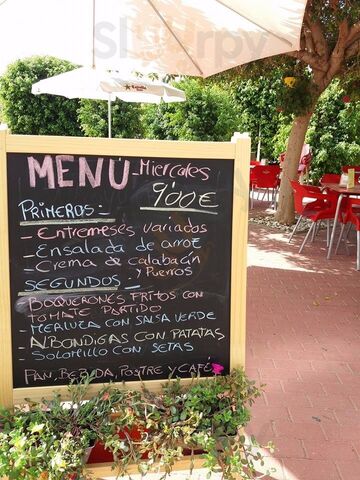 Slurpy
MENÚ - MIERCOLES
9'00€
PRIMEROS:-
- ENTREMESES VARIADOS
- ENSALADA DE ARROZ
- CREMA DE CALABACÍN
Y PUERROS
SEGUNDOS:-
- BOQUERONES FRITOS CON
TOMATE PARTIDO
- MERLUZA CON SALSA VERDE
- ALBONDIGAS CON PATATAS
- SOLOMILLO CON SETAS
PAN, BEBIDA, POSTRE Y CAFÉ